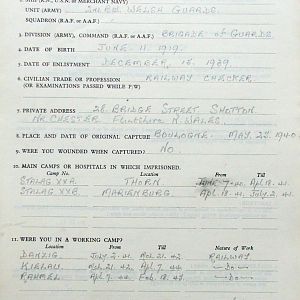 2. SHIP (R.N., U.S.N. or MERCHANT NAVY)
UNIT (ARMY) 2nd BN WELSH GUARDS.
SQUADRON (R.A.F. or A.A.F.)
3. DIVISION (ARMY), COMMAND (R.A.F. or A.A.F.) BRIGADE of GUARDS.
4. DATE OF BIRTH JUNE 11 1919.
5. DATE OF ENLISTMENT DECEMBER, 15. 1939.
6. CIVILIAN TRADE OR PROFESSION RAILWAY CHECKER.
(OR EXAMINATIONS PASSED WHILE P/W)
7. PRIVATE ADDRESS 28 BRIDGE STREET SHOTTON
NR CHESTER Flintshire N. WALES.
8. PLACE AND DATE OF ORIGINAL CAPTURE BOULOGNE. MAY. 25. 1940.
9. WERE YOU WOUNDED WHEN CAPTURED? NO.
10. MAIN CAMPS OR HOSPITALS IN WHICH IMPRISONED.
Camp No. Location From Till
STALAG XXA. THORN 7-40. Apl. 18. 41.
STALAG XXB. MARIENBURG Apl. 18-41. July. 2. 41.
11. WERE YOU IN A WORKING CAMP?
Location From Till Nature of Work
DANZIG July. 2-41. Nov. 21. 42. RAILWAY
KIELAU Nov. 21. 42. Apl. 7. 44. —Do—
RAHMEL Apl. 7. 44. Feb. 18. 45. —Do—